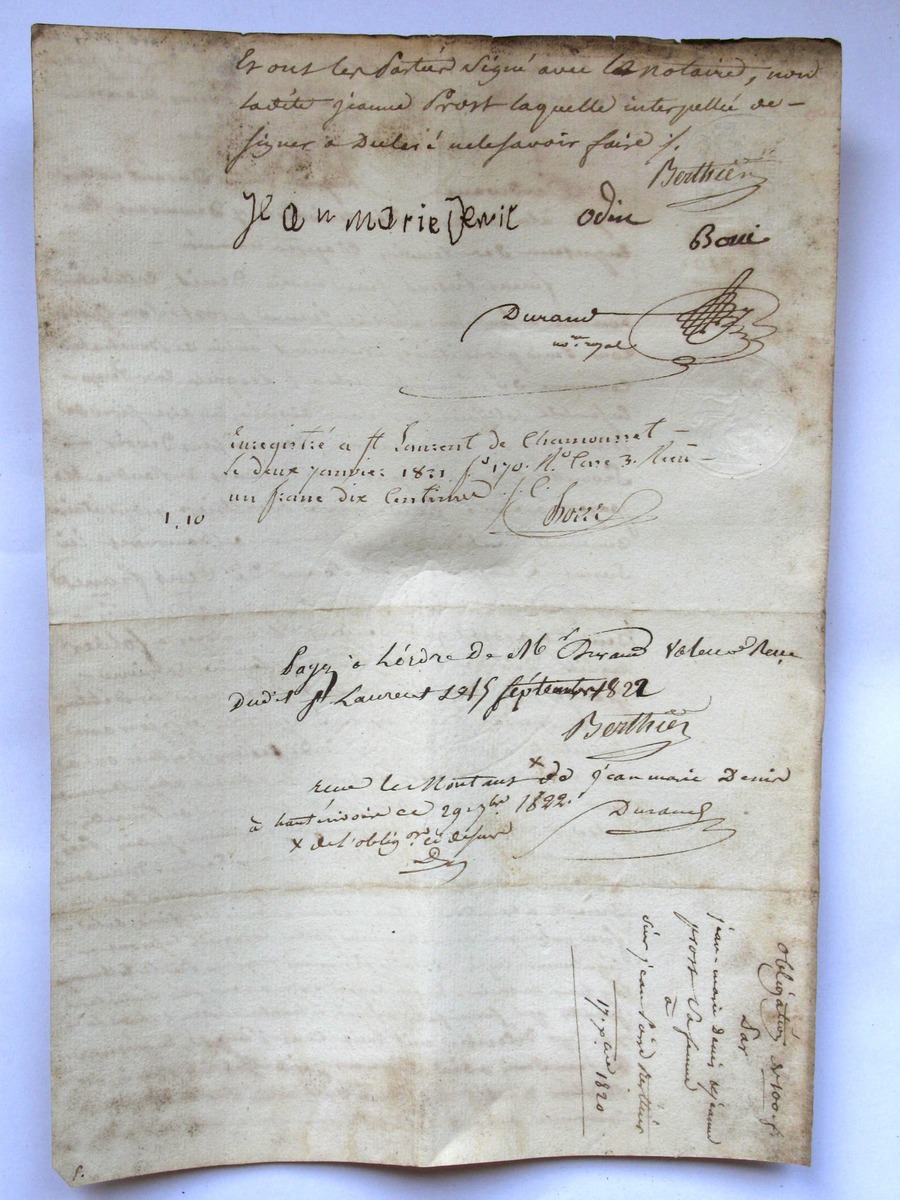 Et ont les parties signé avec le notaire, non
ladite jeanne Prost laquelle interpellée de
signer a declaré ne le savoir faire /.
Berthier
Jean marie Denis odin
Durand
no.re royal
Enregistré a St Laurent de Chamousset
le deux janvier 1821 f.o 170. R.o Case 3. Reçu
un franc dix centimes
1,10
Payez à l'ordre de Mr Durand Valeur Reçue
dudit St Laurent le 15 septembre 1822
Berthier
reçu le Montant × de jean marie Denis
à hauterivoire ce 29 7bre 1822.
Durand
× de l'oblig.on ci dessus
D
obligation de 100 f.
Par
jean-marie denis et jeanne
prost sa femme
à
sieur jean Berthier
17. x.bre 1820